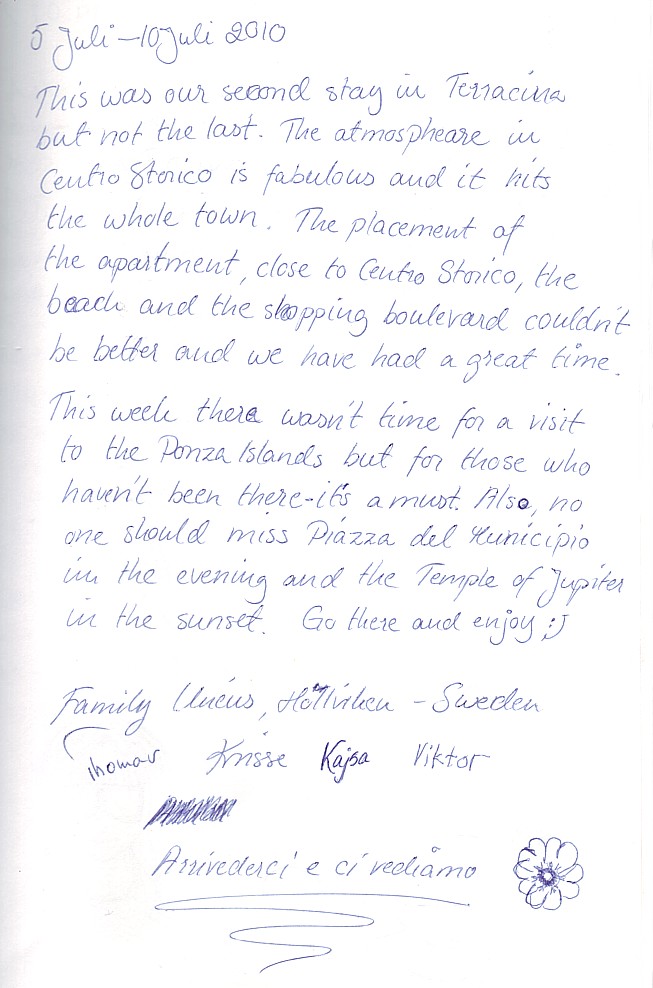 5 Juli – 10 Juli 2010
This was our second stay in Terracina
but not the last. The atmospheare in
Centro Storico is fabulous and it hits
the whole town. The placement of
the apartment, close to Centro Storico, the
beach and the shopping boulevard couldn't
be better and we have had a great time.
This week there wasn't time for a visit
to the Ponza Islands but for those who
haven't been there - it's a must. Also, no
one should miss Piazza del Municipio
in the evening and the Temple of Jupiter
in the sunset. Go there and enjoy ;)
Family, Höllviken – Sweden
Thomas Krisse Kajsa Viktor
Arrivederci e ci vediamo